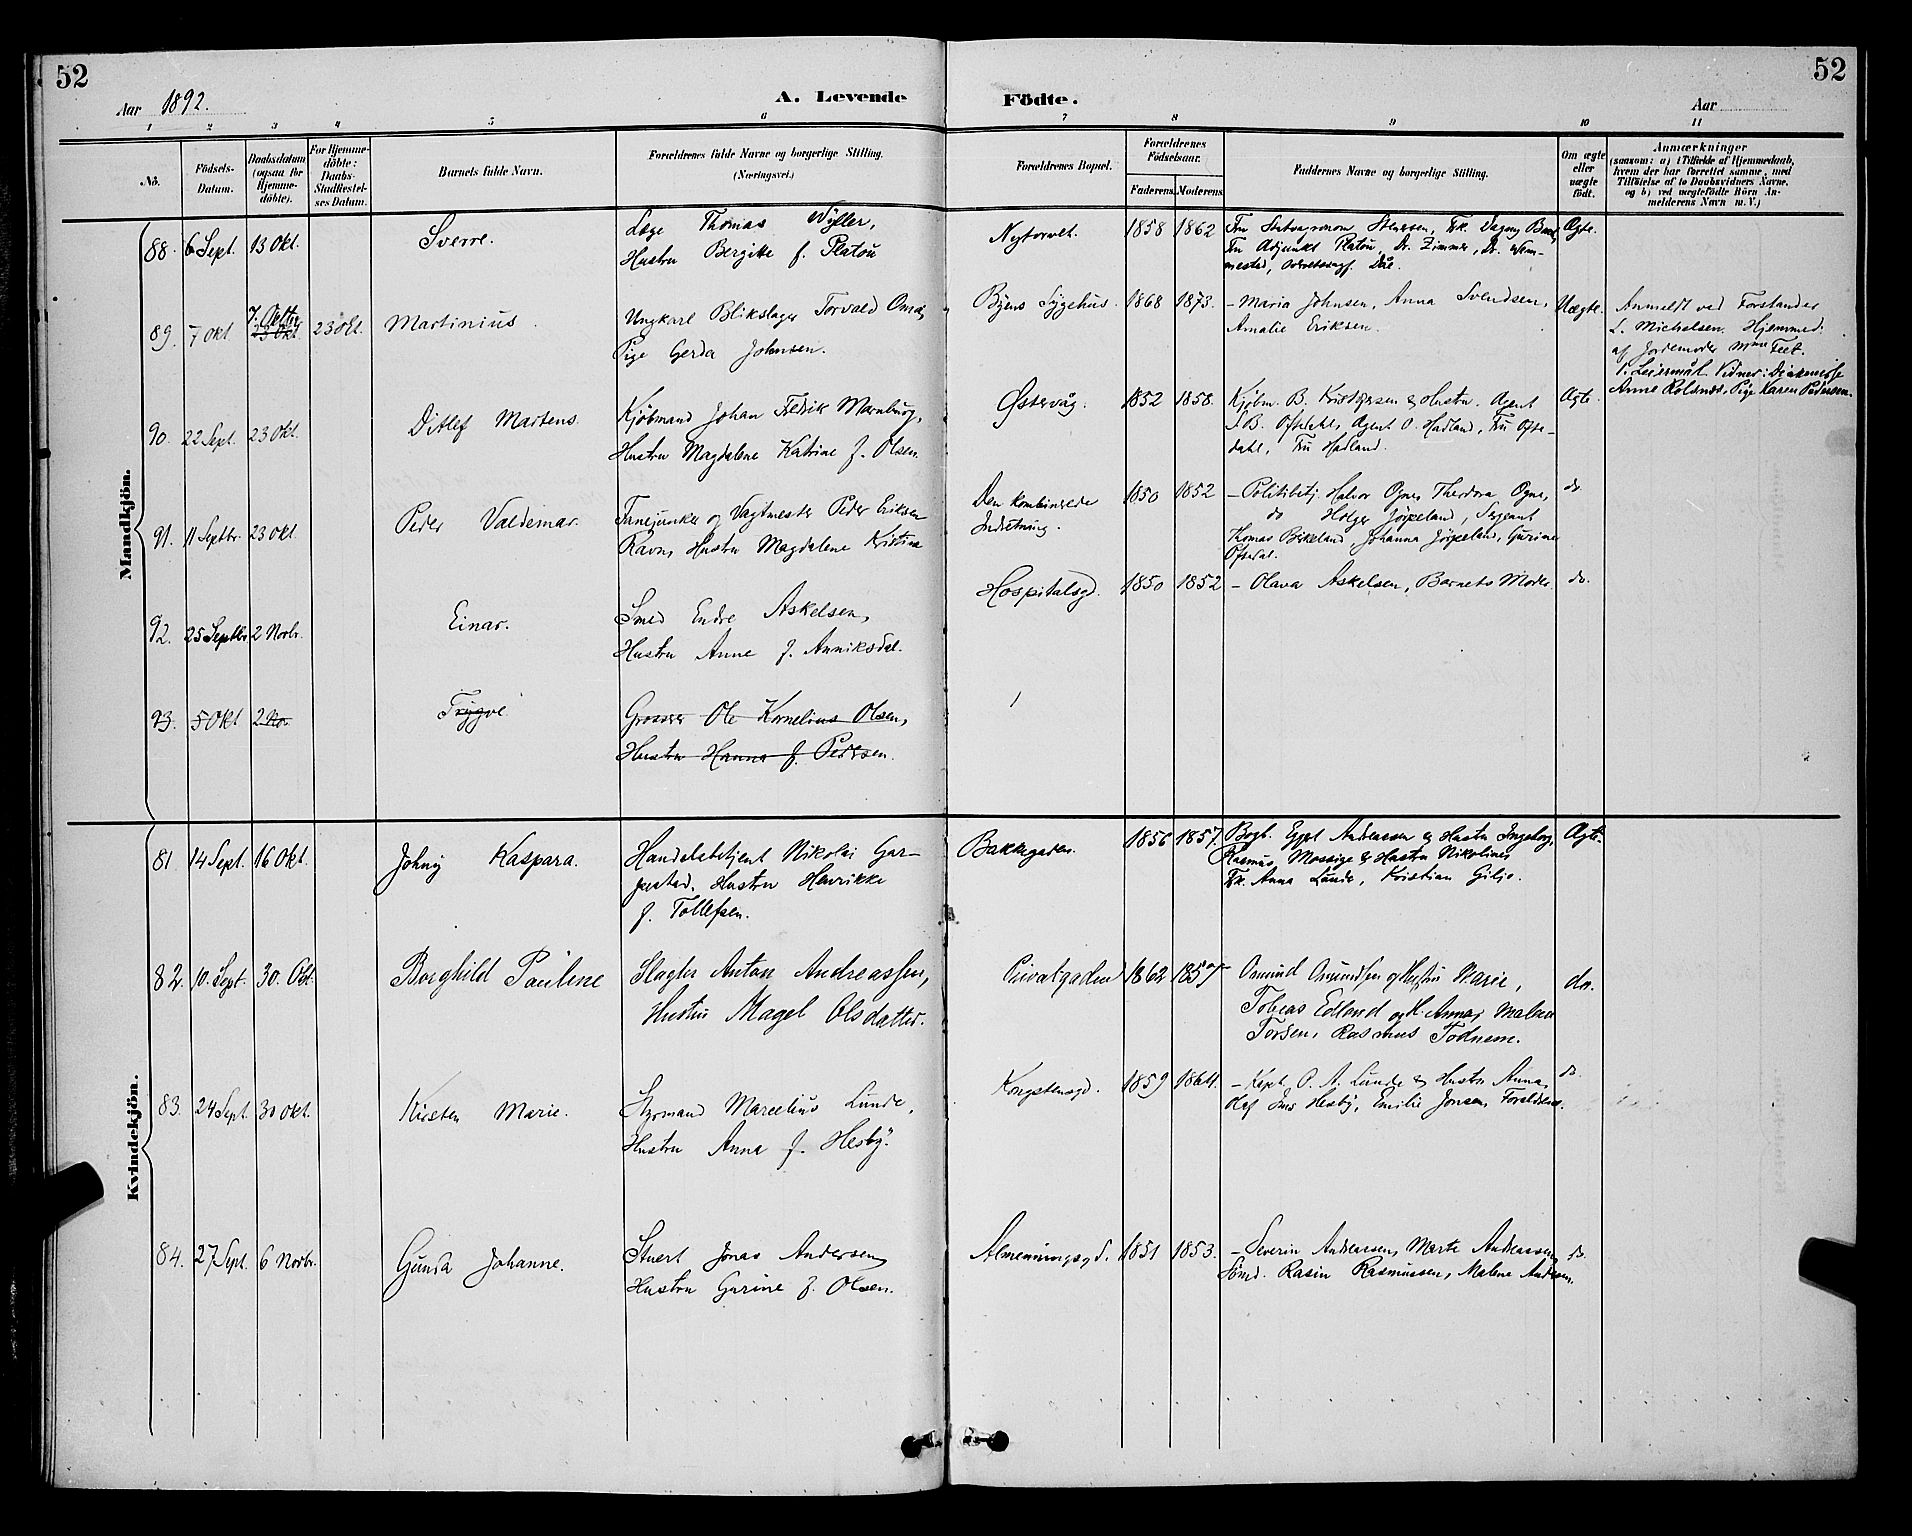 52
Aar 1892.
A. Levende
Födte.
Aar
52
1 2 3 4 5 6 7 8 9 10 11
No.
Födsels-
Datum.
Daabsdatum
(ogsaa for
Hjemme-
döbte).
For Hjemme-
döbte:
Daabs-
Stadfæstel-
ses Datum.
Barnets fulde Navn.
Forældrenes fulde Navne og borgerlige Stilling.
(Næringsvei.)
Forældrenes Bopæl.
Forældrenes
Födselsaar.
Faderens. Moderens.
Faddernes Navne og borgerlige Stilling.
Om ægte
eller
uægte
födt.
Anmærkninger
(saasom: a) i Tilfælde af Hjemmedaab,
hvem der har forrettet samme, med
Tilföielse af to Daabsvidners Navne,
og b) ved uægtefödte Börn An-
melderens Navn m. V.)
Mandkjön.
88. 6 Sept. 13 Okt. Sverre. Læge Thomas Wyller,
Hustru Bergitte f. Platou
Nytorvet. 1858 1862 Fru Statsagronom Stenersen, Frk. Dagny
Fru Adjunkt Platou, Dr. Zimmer, Dr.
Ægte.
89. 7 Okt 7. Oktbr 23 Okt. 23 Okt. Martinius. Ungkarl Blikslager Torvald
Pige Gerda Johnsen.
Byens Sygehus. 1868 1873. – Maria Johnsen, Anna Svendsen,
Amalie Eriksen.
Uægte. Anmeldt ved Forstander
L. Michelsen. Hjemmed.
af Jordemoder Feet.
Leiermaal. Vidner: Diakonisse
Anne Rolsnes, Pige Karen Pedersen.
90. 22 Sept. 23 Okt. Ditlef Martens. Kjöbmand Johan Fredrik Marnburg,
Hustru Magdalene Katrine f. Olsen.
Østervåg. 1852 1858. Kjöbm. B. Kristensen & Hustru. Agent
Oftedahl, Agent O. Hadland, Fru Ofte-
dahl, Fru Hadland.
Ægte.
91. 11 Septbr. 23 Okt. Peder Valdemar. Fanejunker og Vagtmester Peder Eriksen
Ravn, Hustru Magdalene Kristine
Den kombinerede
Indretning. 1850 1852 – Politibetj. Halvor Ogne, Theodora Ogne,
do Holger Jörpeland, Sergeant
Tomas Birkeland, Johanna Jörpeland, Gurine
Oftedal.
do
92. 25 Septbr 2 Novbr. Einar. Smed Endre Askelsen,
Hustru Anne f. Anniksdal.
Hospitalsgd. 1850 1852 – Olava Askelsen, Barnets Moder. do.
93. 5 Okt 2 No. Trygve Grosserer Ole Kornelius Olsen,
Hustru Hanna f. Pedersen.
Kvindekjön.
81. 14 Sept. 16 Okt. Johny Kaspara. Handelsbetjent Nikolai Gar-
pestad, Hustru Henrikke
f. Tollefsen.
Bakkegaden. 1856 1857. Bogb. Andreassen & Hustru Ingeborg,
Rasmus Mossige & Hustru Nikoline,
Frk. Anna Lunde, Kristian Gilje.
Ægte.
82. 10. Sept. 30. Okt. Borghild Pauline Slagter Anton Andreassen,
Hustru Magel Olsdatter.
Privatgaden 1862 1857 Osmund Osmundsen og Hustru Marie,
Tobias Edland og H. Anna, Malene
Torsen, Rasmus Todnem.
do.
83. 24 Sept. 30 Okt. Kirsten Marie. Styrmand Marcelius Lunde,
Hustru Anna f. Hesby.
Kongstensgd. 1859 1864. – Kapt. P. A. Lunde & Hustru Anna,
Jens Hesby, Emilie Jonsen, Forældrene.
do
84. 27 Sept. 6 Novbr. Gunda Johanne. Stuert Jonas Andersen,
Hustru Gurine f. Olsen.
Almenningsgd. 1851 1853. – Severin Andreassen, Marte Andreassen,
Smed. Rasin Rasmussen, Malene Andersen.
do.